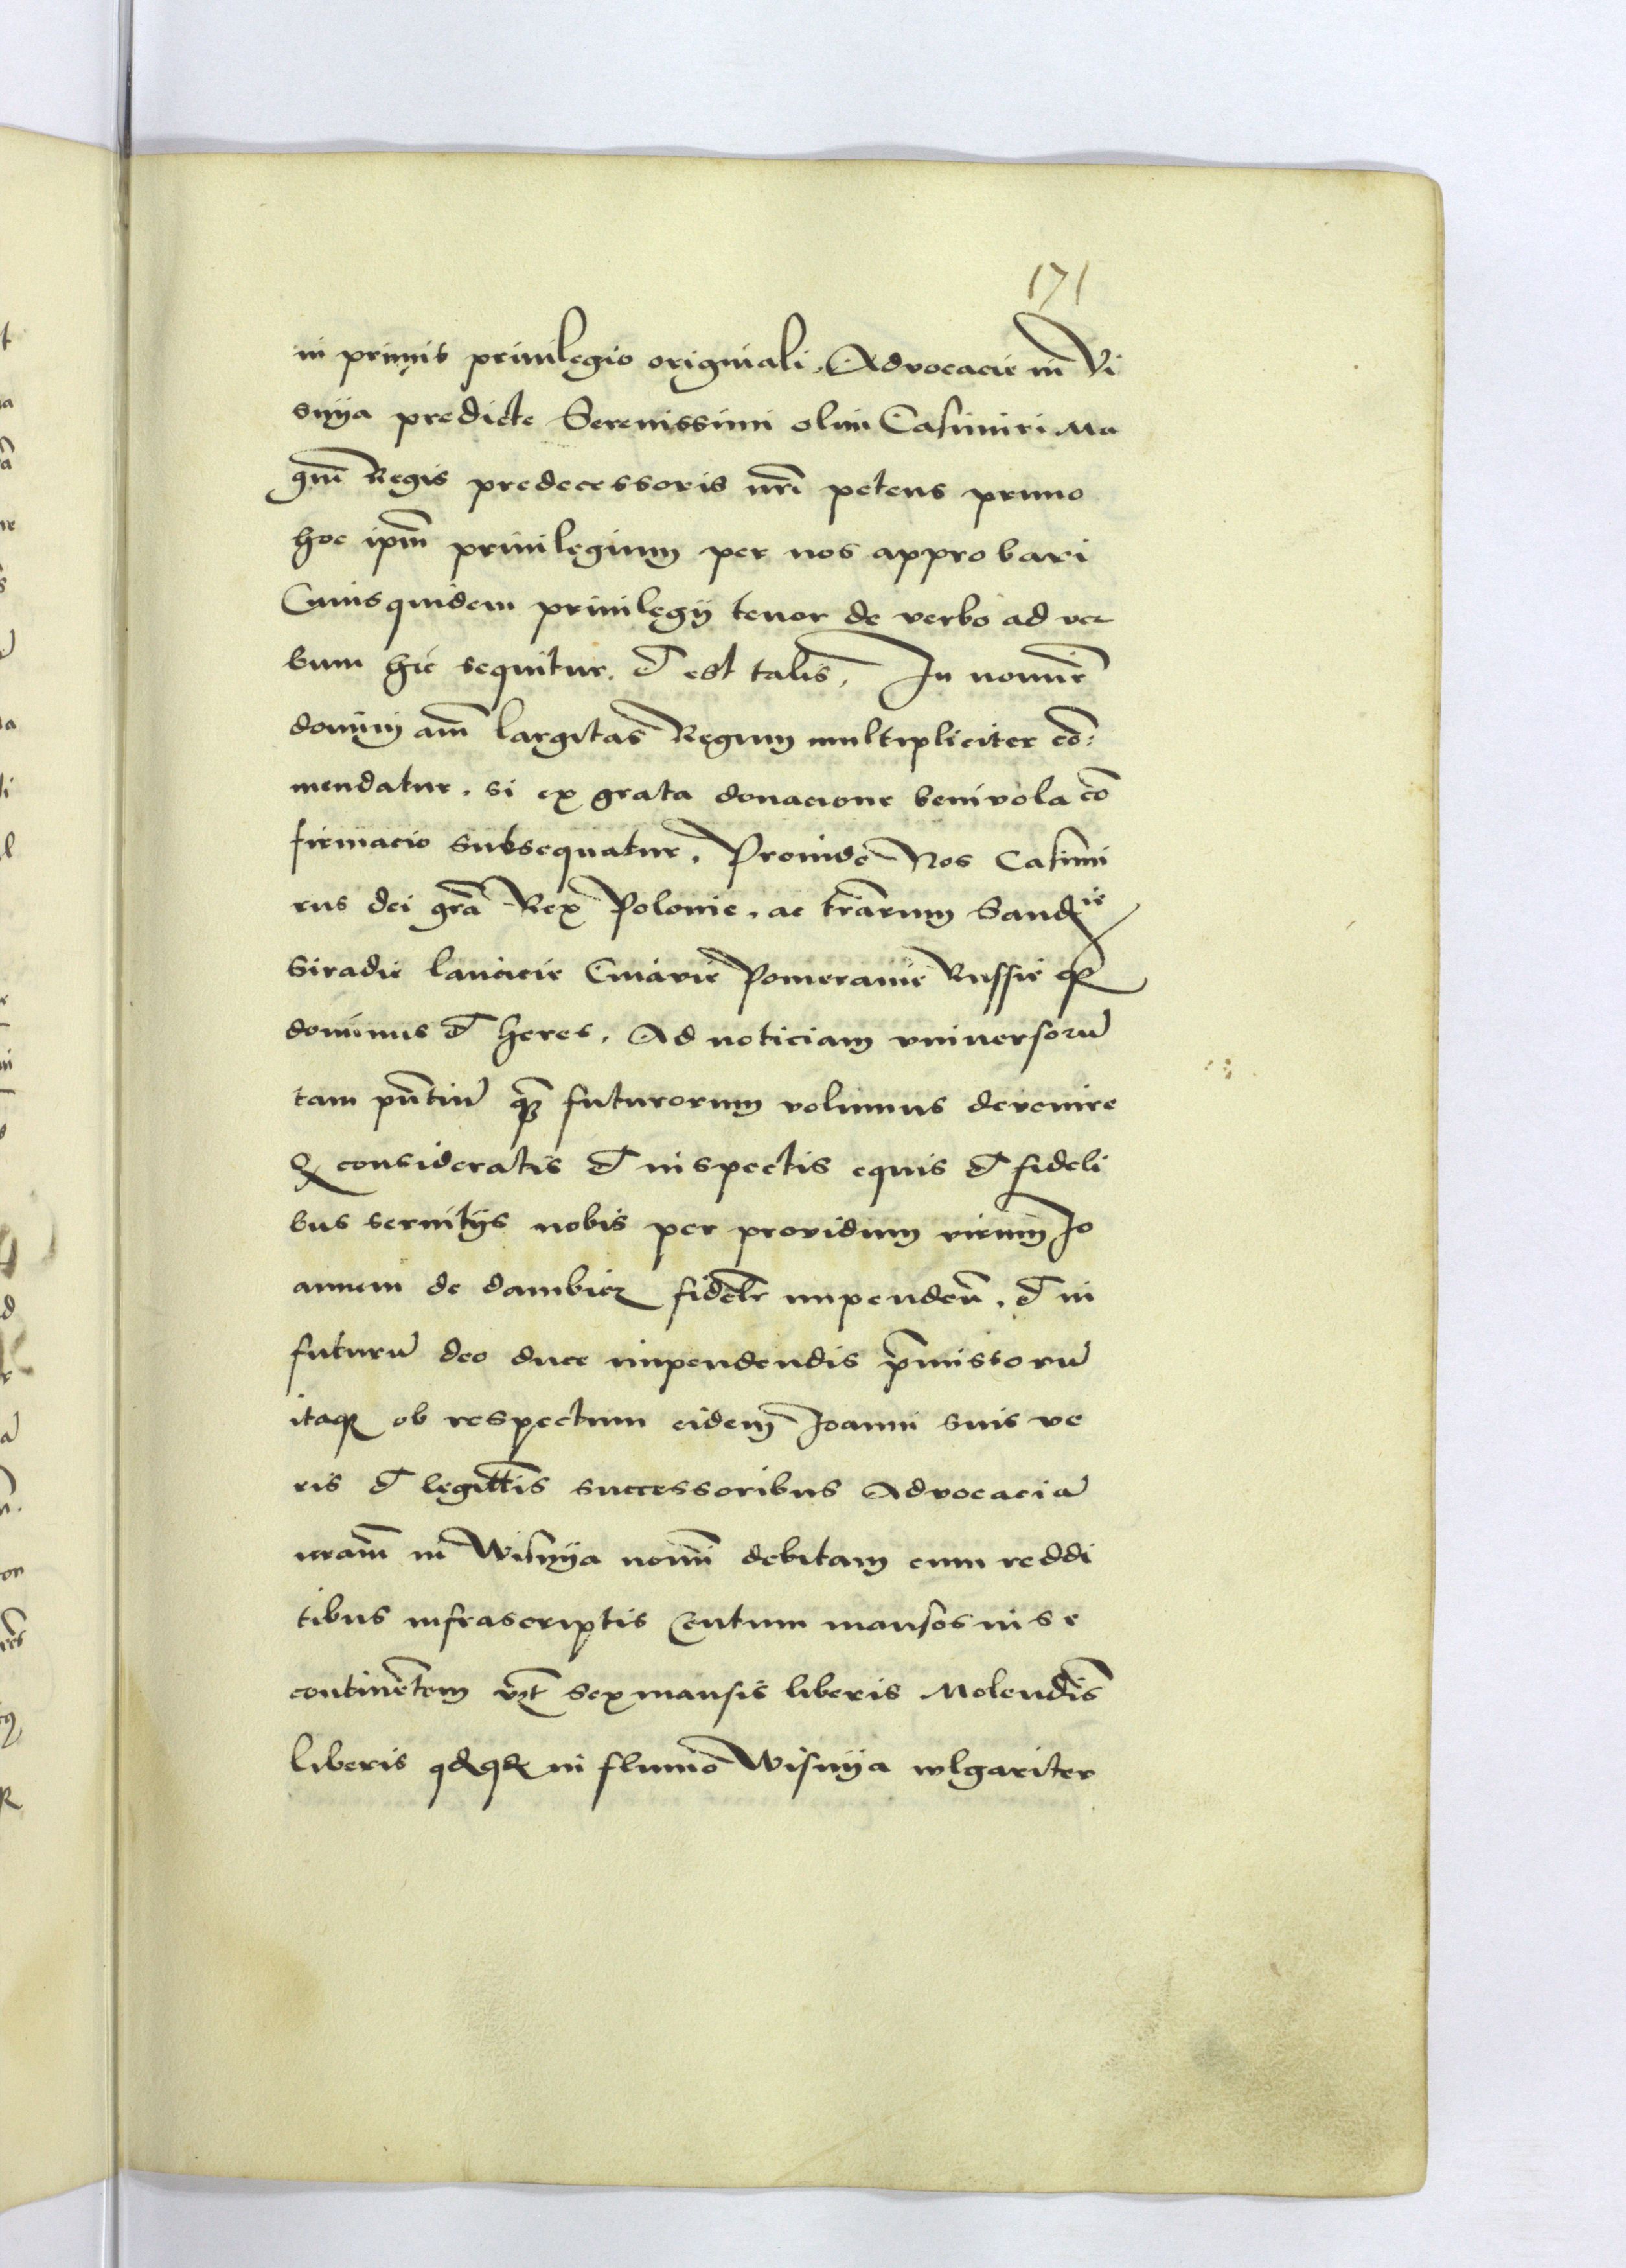 171
in primis privilegio originali, Advocacie in Vi
snya predicte Serenissimi olim Casimiri Ma
gni Regis predecessoris nri petens primo
hoc ipm privilegium per nos approbari
Cuius quidem privilegij tenor de verbo ad ver
bum hic sequitur. et est talis, In nomine
domini am̅ largitas Regum multipliciter co̅:
mendatur. si ex grata donacione benivola co̅
firmacio subsequatur. Proinde Nos Casimi
rus dei gra̅ Rex Polonie. ac tra̅rum Sandie
Siradie lancicie Cuiavie Pomeranie Russie qz
dominus et heres. Ad noticiam vniversoru̅
tam pn̅tiu̅ qz futurorum volumus devenire
Q consideratis et inspectis equis et fideli
bus servitijs nobis per providum virum Jo
annem de dambicz fidelr̅ impenden̅. et in
futuru̅ deo duce impendendis p̅missoru̅
itaqz ob respectum eidem Joanni suis ve
ris et legittis successoribus Advocacia̅
nram̅ in Wisnya nom̅ debitam cum reddi
tibus infrascriptis Centum mansos in se
contine̅tem vzt sex mansis liberis Molendis̅
liberis in flumi̅e Wisnya wlgariter